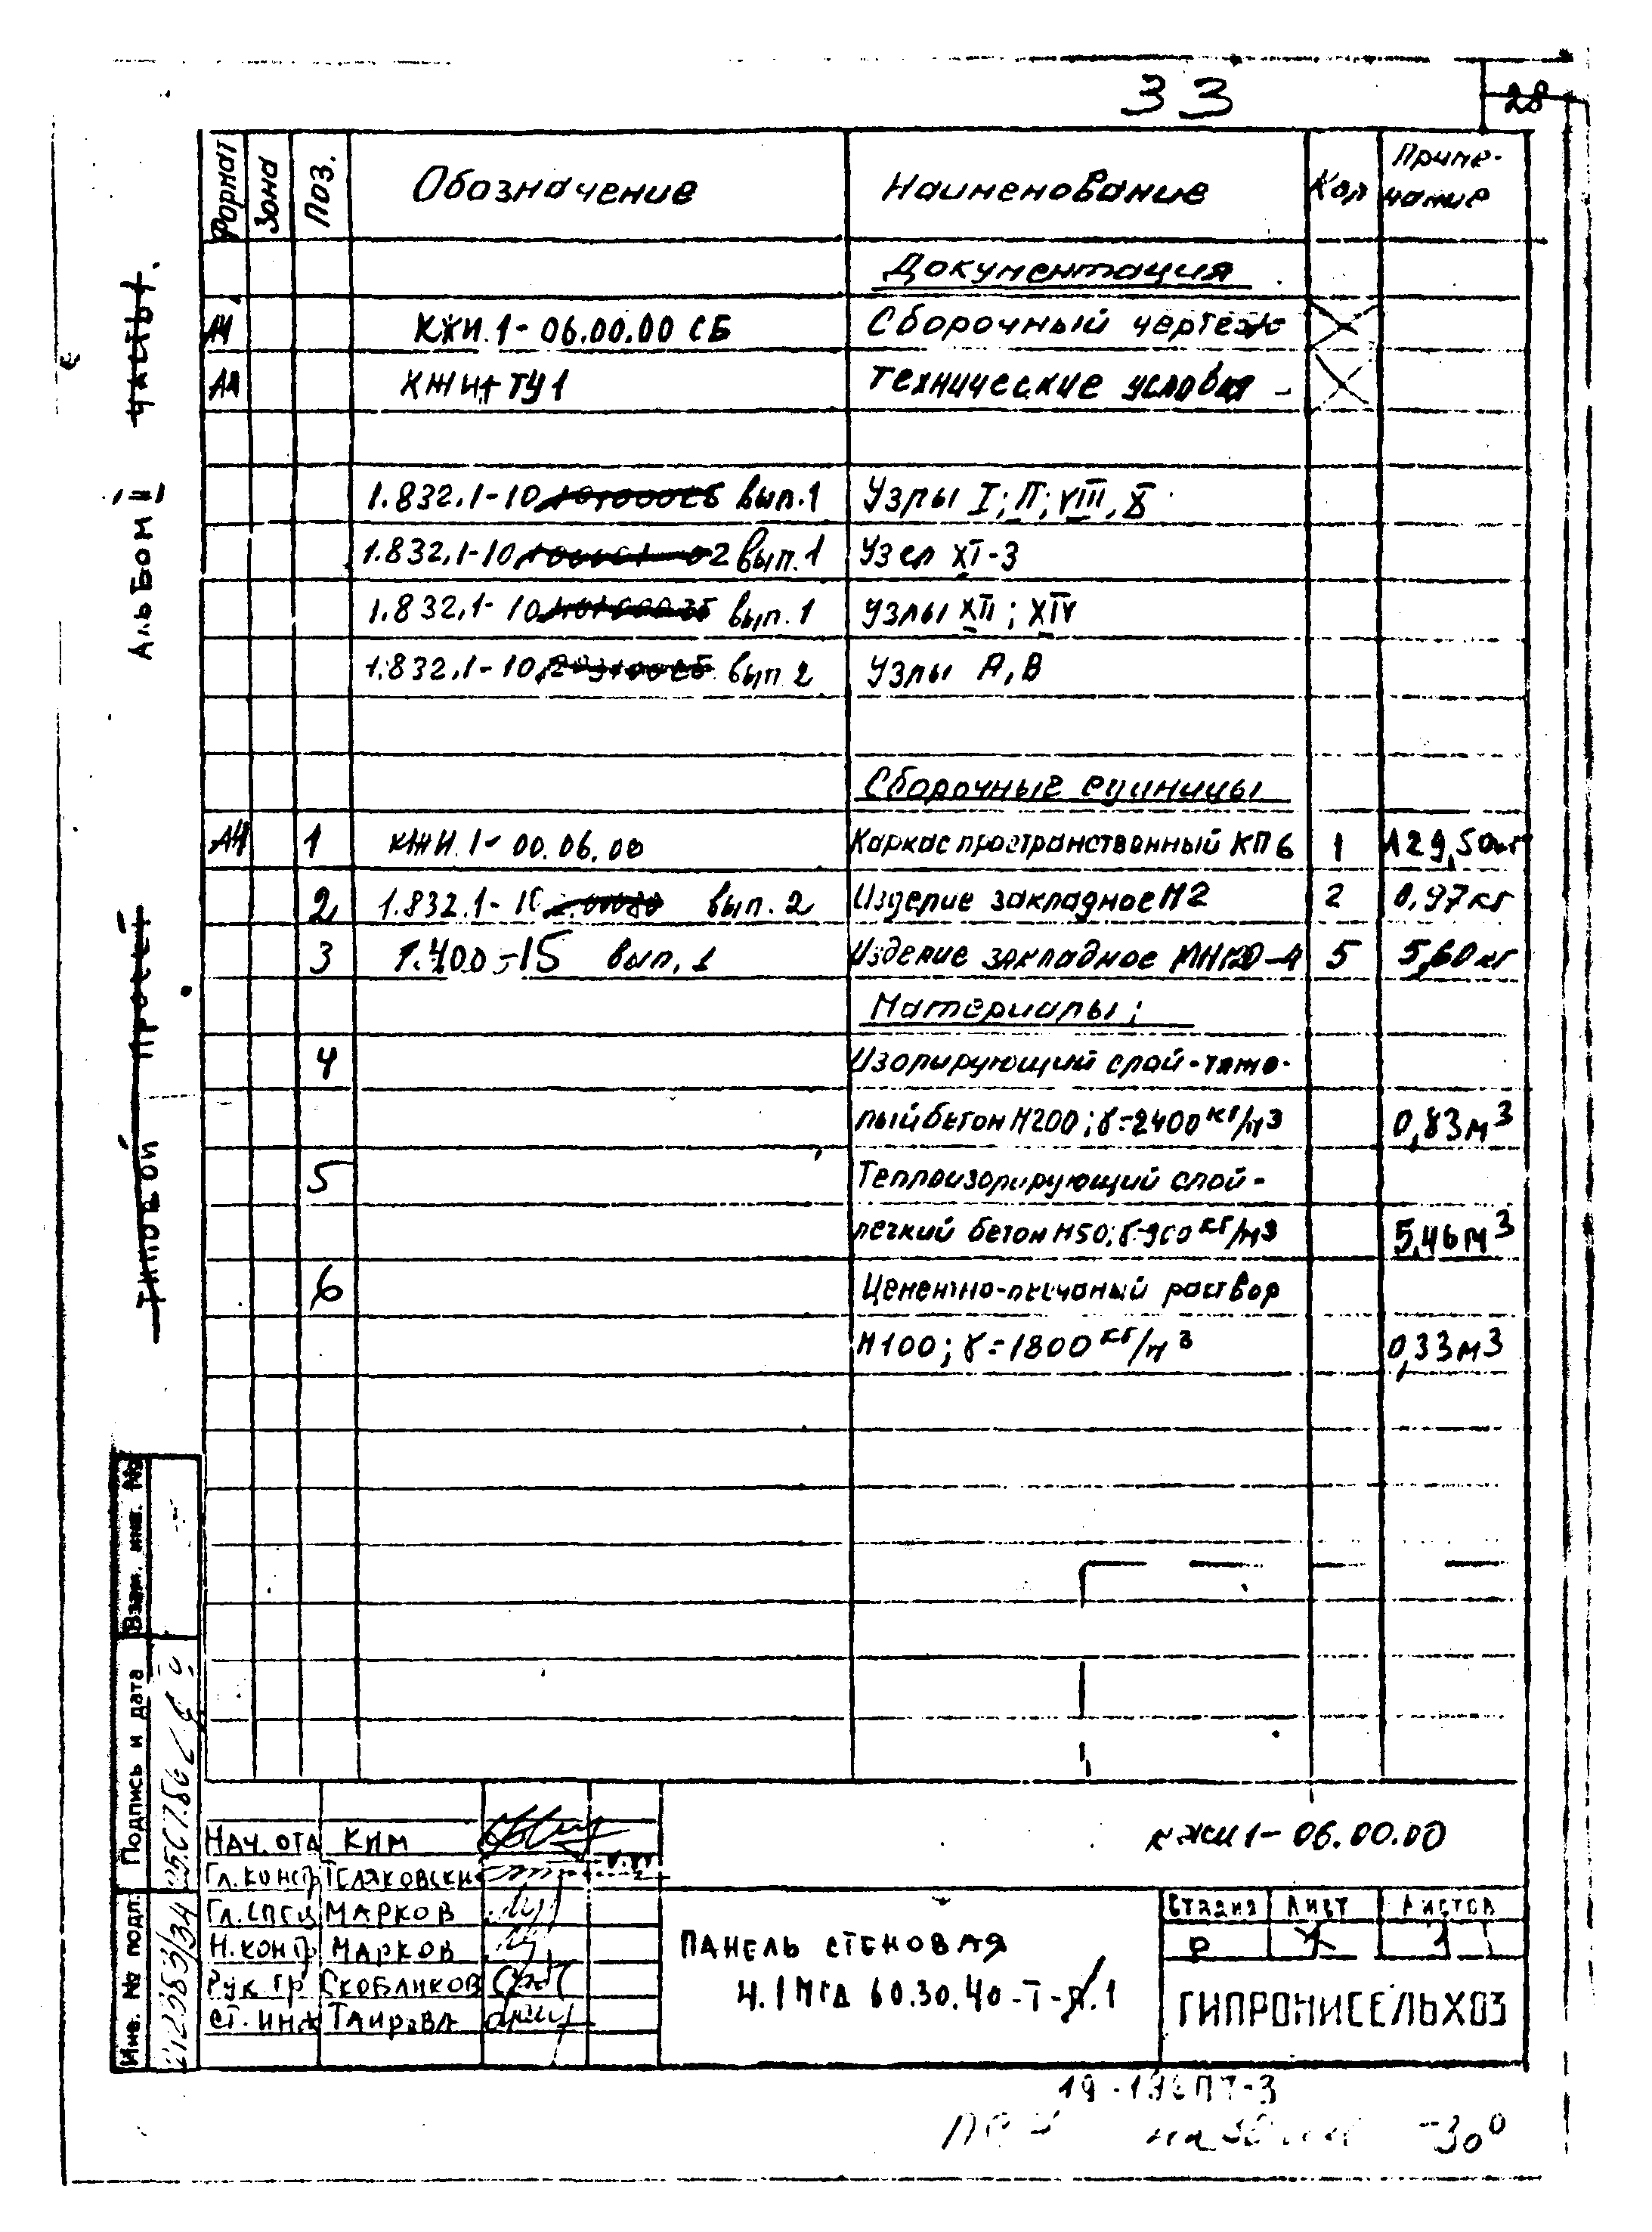 33
28
Формат Зона Поз. Обозначение Наименование Кол Приме-
чание
Документация
А4 КЖИ.1-06.00.00 СБ Сборочный чертеж
А4 ТУ1 Технические условия -
1.832.1-10 вып.1 Узлы I; II; VIII, X
1.832.1-10 вып.1 Узел XI-3
1.832.1-10 вып.1 Узлы XII; XIV
1.832.1-10 вып 2 Узлы А, В
Сборочные единицы
А4 1 КЖИ.1-00.06.00 Каркас пространственный КП6 1 129,50кг
2 1.832.1-10 вып. 2 Изделие закладное М2 2 0,97кг
3 1.400-15 вып. 1 Изделие закладное 5 5,60кг
Материалы:
4 Изолирующий слой-тяже-
лый бетон М200; γ=2400 кг/м3 0,83м3
5 Теплоизолирующий слой-
легкий бетон М50; γ-900 кг/м3 5,46м3
6 Цементно-песчаный раствор
М100; γ=1800 кг/м3 0,33м3
Альбом II часть 1.
Типовой проект
Взам. инв. №
Подпись и дата
Инв. № подл.
Нач. отд КИМ
Гл. констр
Гл. спец МАРКОВ
Н. контр МАРКОВ
Рук. гр Скобликов
Ст. инж Таирова
КЖИ1-06.00.00
ПАНЕЛЬ СТЕНОВАЯ
60.30.40-Т-Л.1
Стадия Лист Листов
Р 1 1
ГИПРОНИСЕЛЬХОЗ
-30°